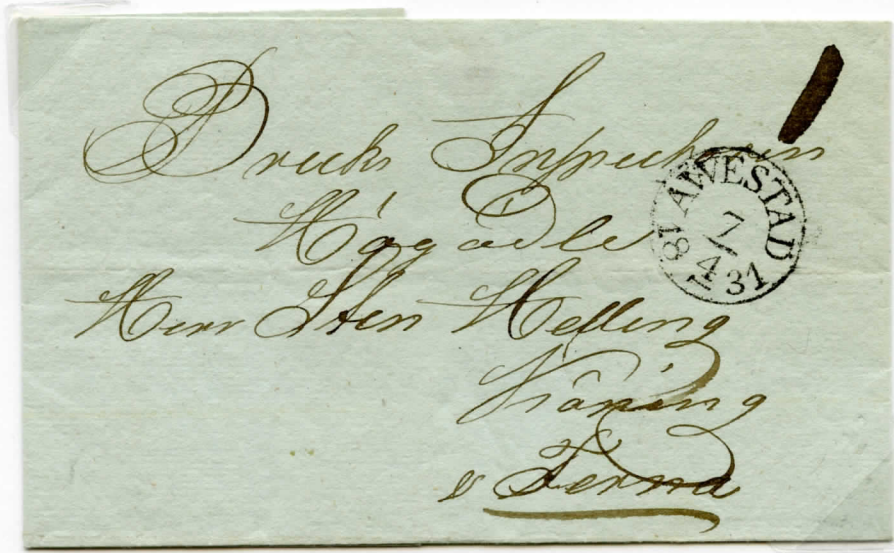 Bruks Inspectoren
Högädle
Herr Sten Helling
Köping
& Ferna
AWESTAD
7
4
18 31